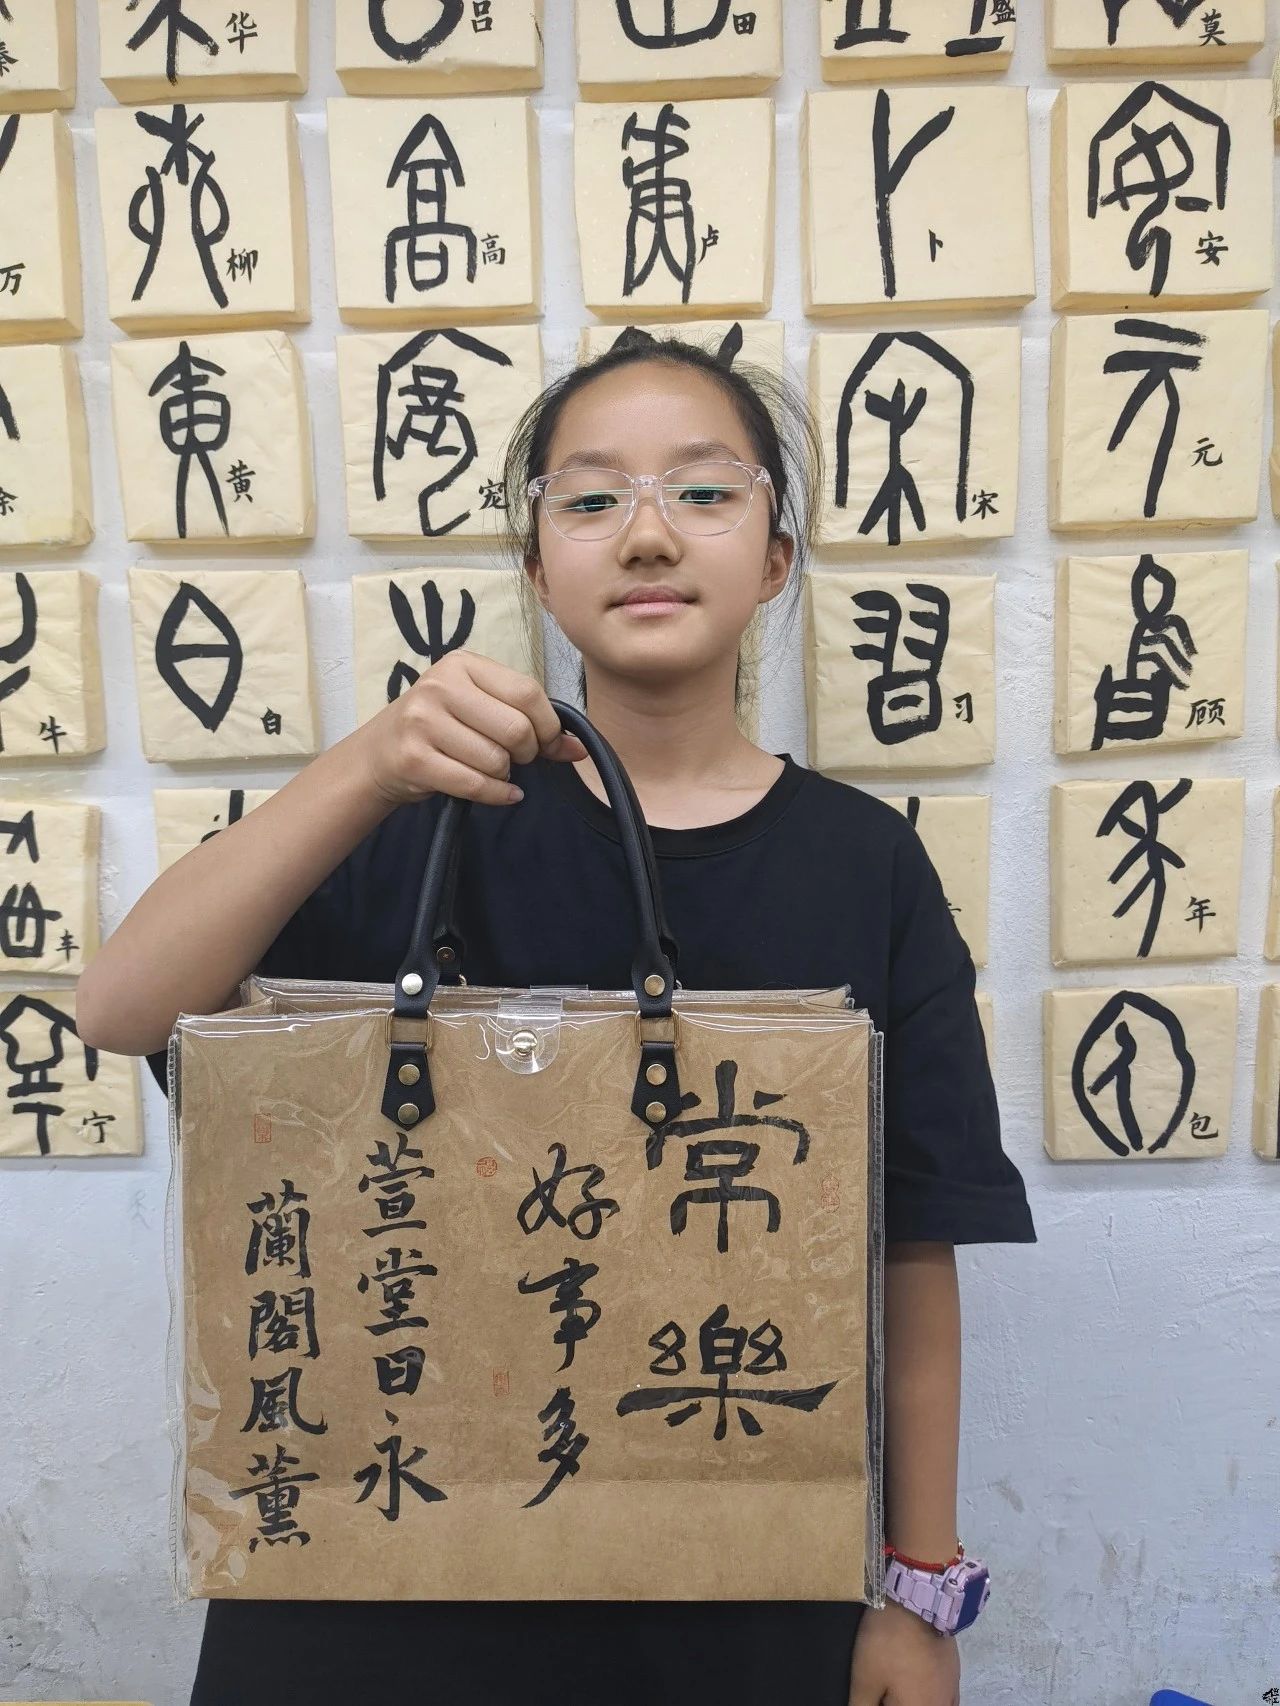 华
吕
田
盛
莫
万
柳
高
卢
卜
安
余
黄
宠
宋
元
牛
白
习
顾
丰
年
宁
包
常樂
好事多
萱堂日永
蘭閣風薰